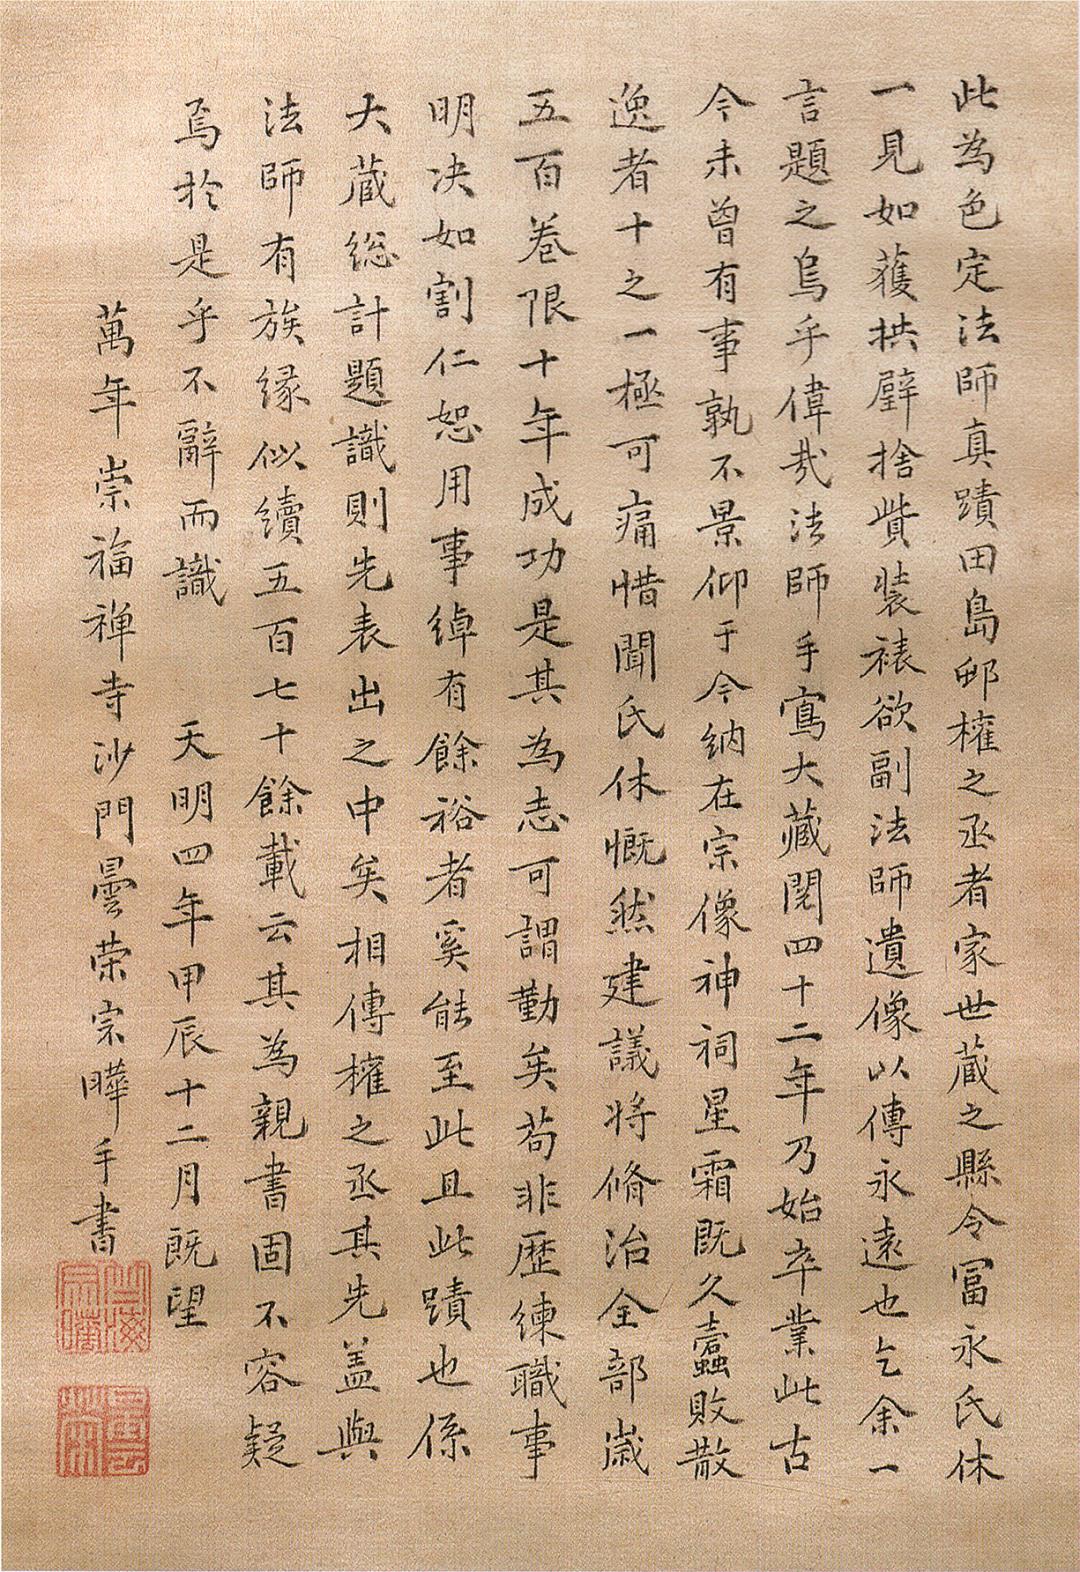 此為色定法師真蹟田島邨權之丞者家世蔵之縣令冨永氏休
一見如獲拱璧捨貲装裱欲副法師遺像以傳永遠也乞余一
言題之烏乎偉哉法師手寫大藏閱四十二年乃始卒業此古
今未曽有事孰不景仰于今納在宗像神祠星霜既久蠧敗散
逸者十之一極可痛惜聞氏休慨然建議将脩治全部歳
五百巻限十年成功是其為志可謂勤矣苟非歴練職事
明决如割仁恕用事綽有餘裕者奚能至此且此蹟也係
大蔵総計題識則先表出之中矣相傳權之丞其先盖與
法師有族縁似續五百七十餘載云其為親書固不容疑
焉於是乎不辭而識 天明四年甲辰十二月既望
萬年崇福禅寺沙門曇荣宗曄手書